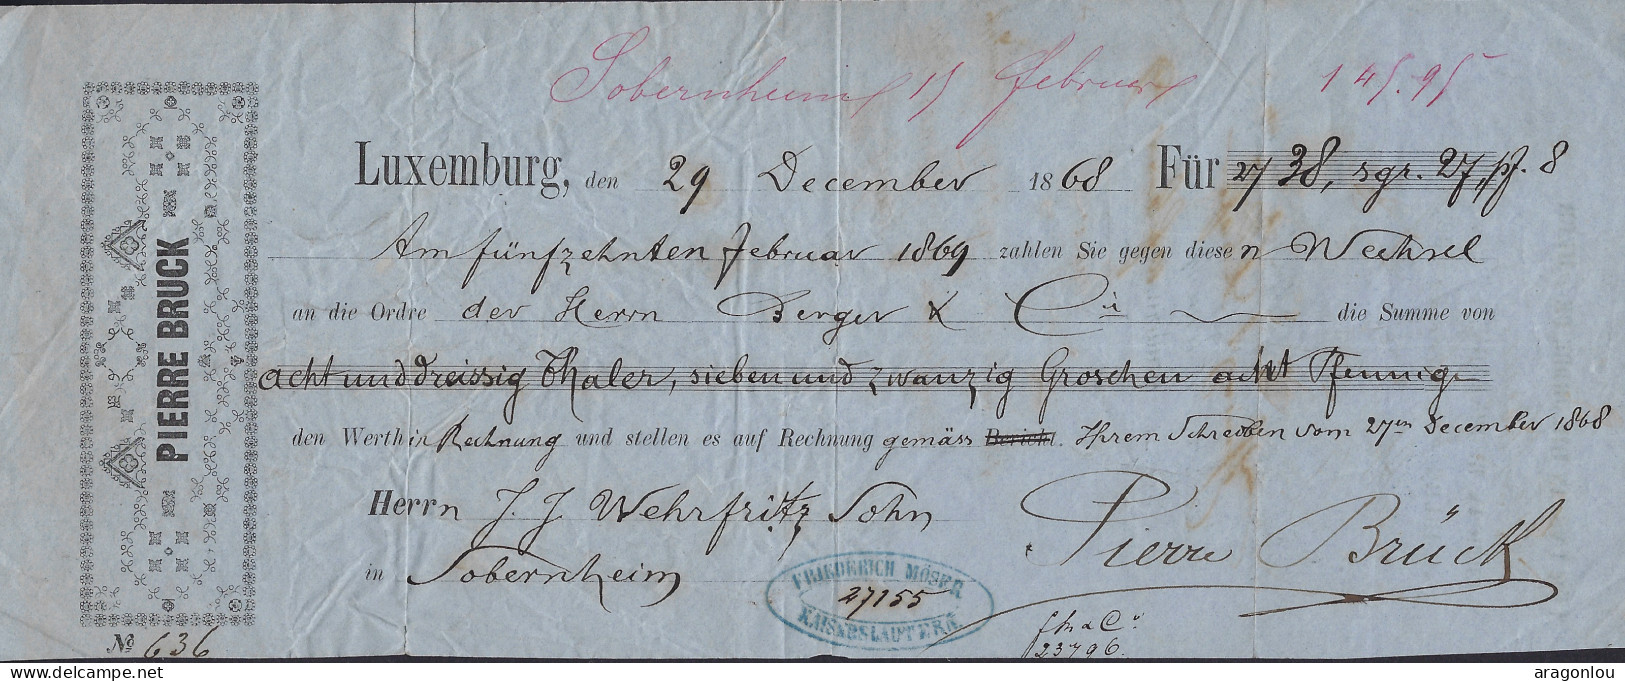 Sobernheim 15 Februar 145.95
Luxemburg, den 29 December 1868 Für 38, sgr. 27, pf. 8
Am fünfzehnten Februar 1869 zahlen Sie gegen diesen Wechsel
an die Ordre der Herrn Berger & Cie die Summe von
acht und dreissig Thaler, sieben und zwanzig Groschen acht Pfennig
den Werth in Rechnung und stellen es auf Rechnung gemäss Bericht. Ihrem Schreiben vom 27ten December 1868
Herrn J. J. Wehrfritz Sohn
Pierre Brück
in Sobernheim
FRIEDERICH MÖSER
27155
KAISERSLAUTERN
23796.
PIERRE BRUCK
No 636
delcampe.net
aragonlou